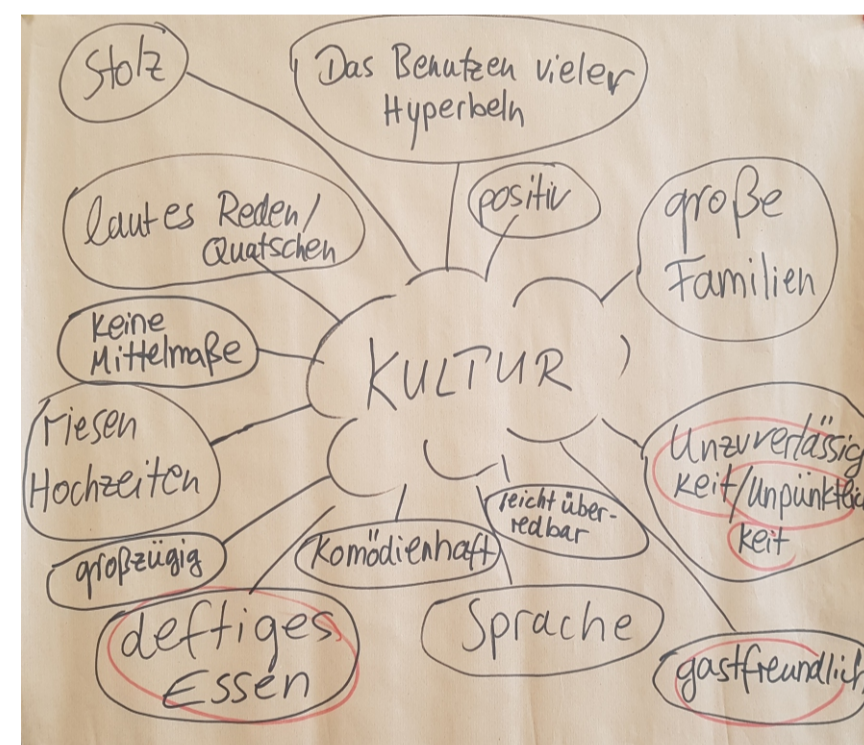 Stolz
Das Benutzen vieler
Hyperbeln
positiv
lautes Reden/
Quatschen
große
Familien
keine
Mittelmaße
KULTUR
riesen
Hochzeiten
Unzuverlässig
keit/Unpünktlich
keit
leicht über-
redbar
großzügig
Komödienhaft
deftiges
Essen
Sprache
gastfreundlich